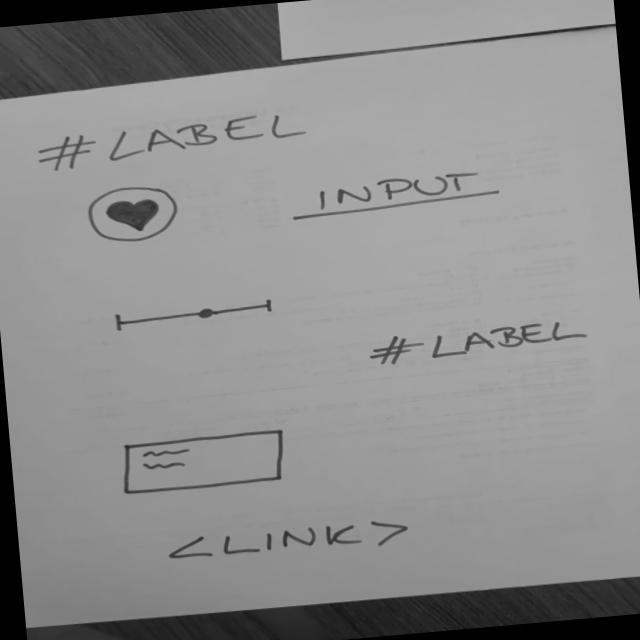 # LABEL
INPUT
# LABEL
<LINK>